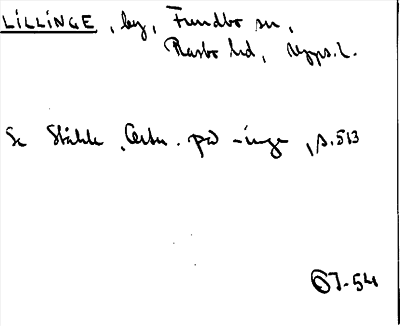 LILLINGE, by, Fundbo sn,
Rasbo hd, Upps. l.
Se Ståhle, Ortn. på -inge, s. 513
OJ-54